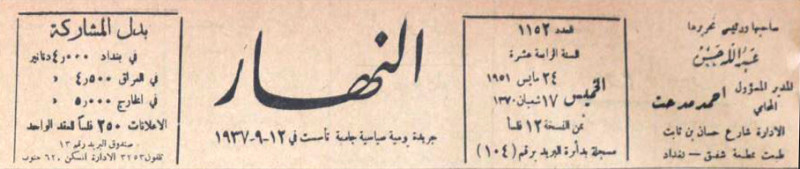 صاحبها ورئيس تحريرها
عبد الله حسن
المدير المسؤول
المحامي
احمد مدحت
الادارة شارع حسان بن ثابت
طبعت بمطبعة شفيق - بغداد
العدد ١١٥٢
السنة الرابعة عشرة
٢٤ مايس ١٩٥١
الخميس ١٧ شعبان ١٣٧٠
ثمن النسخة ١٢ فلساً
مسجلة بدائرة البريد برقم (١٠٤)
النهار
جريدة يومية سياسية جامعة تأسست في ١٢-٩-١٩٣٧
بدل المشاركة
في بغداد ٤٫٠٠٠ دنانير
في العراق ٤٫٥٠٠ »
في الخارج ٥٫٠٠٠ »
الاعلانات ٢٥٠ فلساً للعقد الواحد
صندوق البريد رقم ١٣
تلفون ٣٢٥٣ الادارة السكن ٦٢٠ جنوب